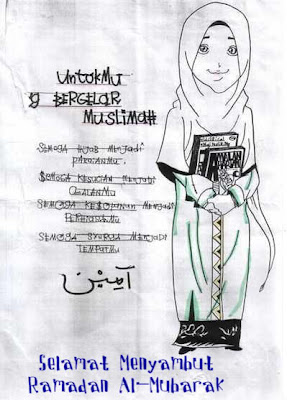 UntukMu
yg BERGELAR
MuslimaH
SEMOGA HIJAB MenJadi
PAKAIANMU
SEMOGA KESUCIAN MenJadi
SEMOGA KESOPANAN MenJadi
SEMOGA SYURGA MENJADI
TEMPATMU
آمِيْن
Selamat Menyambut
Ramadan Al-Mubarak